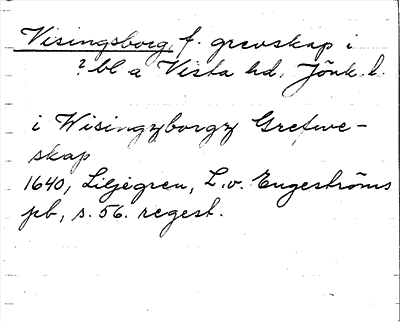 Visingsborg, f. grevskap i
? bl a Vista hd, Jönk. l.
i Wisingzborgz Grefwe-
skap
1640, Liljegren, L. v. Engeströms
pb, s. 56. regest.